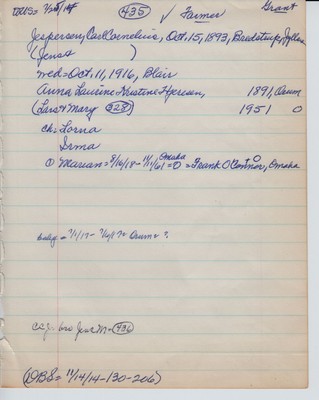 435 ✓ Farmer Grant
Jespersen, Carl Cornelius, Oct. 15, 1893, Bredstrup, Jylland
(Jens +          )
wed = Oct. 11, 1916, Blair
Anna Laurine Kristine Iversen, 1891, Orum
(Lars + Mary 328) 1951 0
ch: Lorna
Irma
① Marian = 8/16/18 - 11/1/61 Omaha = 0 = Frank O'Connor, Omaha
Orum 2 ?
bro Jens M = 436
(DBS = 11/14/14 - 130 - 206)